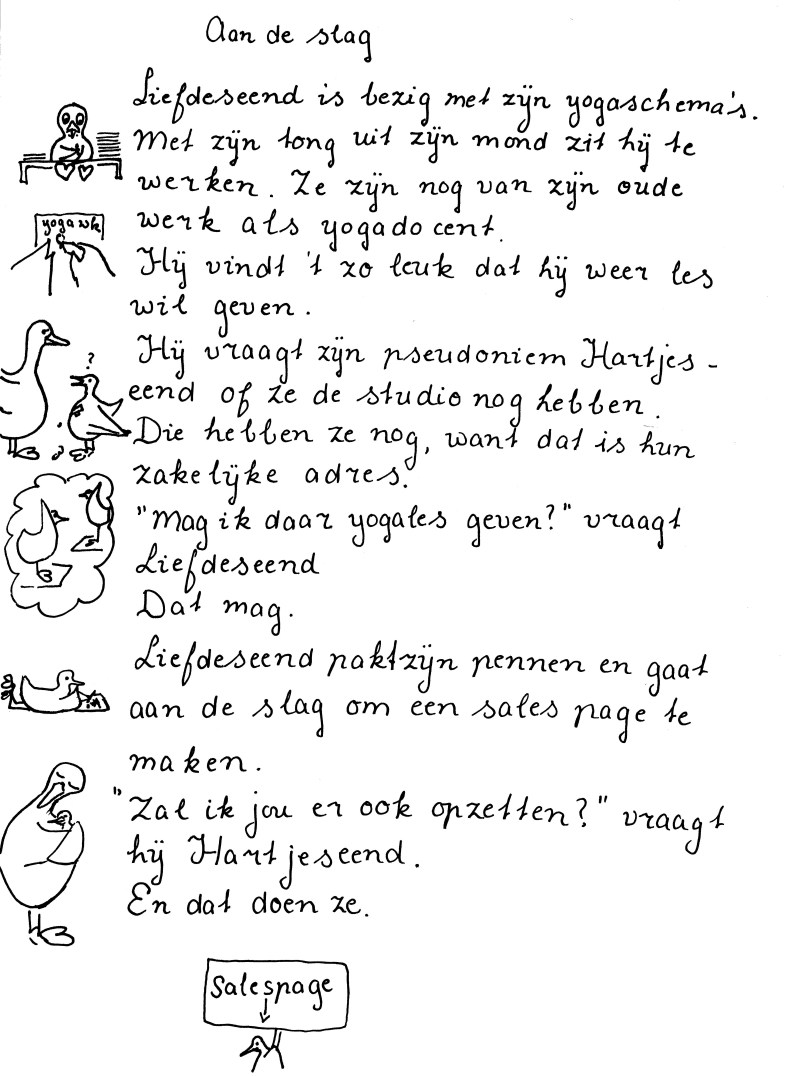 Aan de slag
Liefdeseend is bezig met zijn yogaschema's.
Met zijn tong uit zijn mond zit hij te
werken. Ze zijn nog van zijn oude
yoga wk
werk als yogadocent.
Hij vindt 't zo leuk dat hij weer les
wil geven.
Hij vraagt zijn pseudoniem Hartjes-
?
eend of ze de studio nog hebben.
Die hebben ze nog, want dat is hun
zakelijke adres.
"Mag ik daar yogales geven?" vraagt
Liefdeseend
Dat mag.
Liefdeseend pakt zijn pennen en gaat
aan de slag om een sales page te
maken.
"Zal ik jou er ook opzetten?" vraagt
hij Hartjeseend.
En dat doen ze.
Salespage